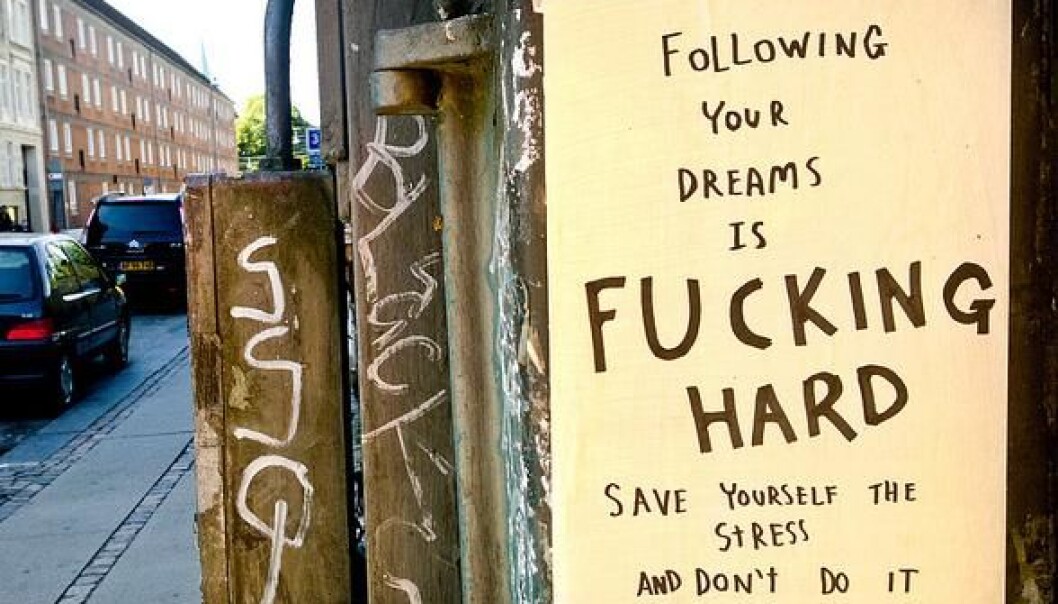 FOLLOWING
YOUR
DREAMS
IS
FUCKING
HARD
SAVE YOURSELF THE
STRESS
AND DON'T DO IT